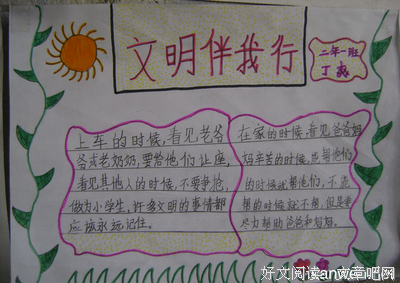 文明伴我行
二年一班
丁
上车的时候,看见老爷
爷或老奶奶,要给他们让座,
看见其他人的时候,不要争抢,
做为小学生,许多文明的事情都
应该永远记住。
在家的时候,看见爸爸妈
妈辛苦的时候,帮他们
的时候就帮他们,不
帮的时候就不帮,但是
尽力帮助爸爸和妈妈。
好文阅读an文章吧网